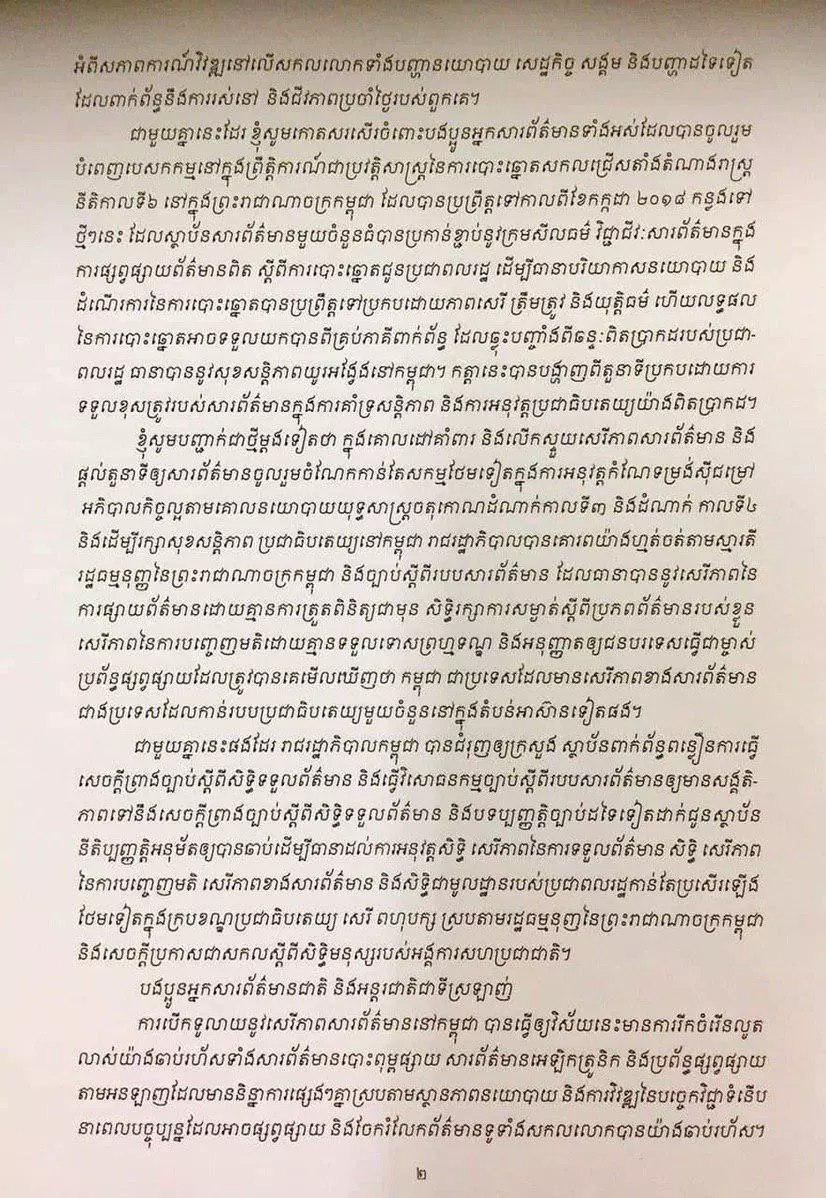 អំពីសភាពការណ៍វិវឌ្ឍនៅលើសកលលោកទាំងបញ្ហានយោបាយ សេដ្ឋកិច្ច សង្គម និងបញ្ហាដទៃទៀត
ដែលពាក់ព័ន្ធនឹងការរស់នៅ និងជីវភាពប្រចាំថ្ងៃរបស់ពួកគេ។
ជាមួយគ្នានេះដែរ ខ្ញុំសូមកោតសរសើរចំពោះបងប្អូនអ្នកសារព័ត៌មានទាំងអស់ដែលបានចូលរួម
បំពេញបេសកកម្មនៅក្នុងព្រឹត្តិការណ៍ជាប្រវត្តិសាស្ត្រនៃការបោះឆ្នោតសកលជ្រើសតាំងតំណាងរាស្ត្រ
នីតិកាលទី៦ នៅក្នុងព្រះរាជាណាចក្រកម្ពុជា ដែលបានប្រព្រឹត្តទៅកាលពីខែកក្កដា ២០១៨ កន្លងទៅ
ថ្មីៗនេះ ដែលស្ថាប័នសារព័ត៌មានមួយចំនួនធំបានប្រកាន់ខ្ជាប់នូវក្រមសីលធម៌ វិជ្ជាជីវៈសារព័ត៌មានក្នុង
ការផ្សព្វផ្សាយព័ត៌មានពិត ស្តីពីការបោះឆ្នោតជូនប្រជាពលរដ្ឋ ដើម្បីធានាបរិយាកាសនយោបាយ និង
ដំណើរការនៃការបោះឆ្នោតបានប្រព្រឹត្តទៅប្រកបដោយភាពសេរី ត្រឹមត្រូវ និងយុត្តិធម៌ ហើយលទ្ធផល
នៃការបោះឆ្នោតអាចទទួលយកបានពីគ្រប់ភាគីពាក់ព័ន្ធ ដែលឆ្លុះបញ្ចាំងពីឆន្ទៈពិតប្រាកដរបស់ប្រជា-
ពលរដ្ឋ ធានាបាននូវសុខសន្តិភាពយូរអង្វែងនៅកម្ពុជា។ កត្តានេះបានបង្ហាញពីតួនាទីប្រកបដោយការ
ទទួលខុសត្រូវរបស់សារព័ត៌មានក្នុងការគាំទ្រសន្តិភាព និងការអនុវត្តប្រជាធិបតេយ្យយ៉ាងពិតប្រាកដ។
ខ្ញុំសូមបញ្ជាក់ជាថ្មីម្តងទៀតថា ក្នុងគោលដៅគាំពារ និងលើកស្ទួយសេរីភាពសារព័ត៌មាន និង
ផ្តល់តួនាទីឲ្យសារព័ត៌មានចូលរួមចំណែកកាន់តែសកម្មថែមទៀតក្នុងការអនុវត្តកំណែទម្រង់ស៊ីជម្រៅ
អភិបាលកិច្ចល្អតាមគោលនយោបាយយុទ្ធសាស្ត្រចតុកោណដំណាក់កាលទី៣ និងដំណាក់ កាលទី៤
និងដើម្បីរក្សាសុខសន្តិភាព ប្រជាធិបតេយ្យនៅកម្ពុជា រាជរដ្ឋាភិបាលបានគោរពយ៉ាងហ្មត់ចត់តាមស្មារតី
រដ្ឋធម្មនុញ្ញនៃព្រះរាជាណាចក្រកម្ពុជា និងច្បាប់ស្តីពីរបបសារព័ត៌មាន ដែលធានាបាននូវសេរីភាពនៃ
ការផ្សាយព័ត៌មានដោយគ្មានការត្រួតពិនិត្យជាមុន សិទ្ធិរក្សាការសម្ងាត់ស្តីពីប្រភពព័ត៌មានរបស់ខ្លួន
សេរីភាពនៃការបញ្ចេញមតិដោយគ្មានទទួលទោសព្រហ្មទណ្ឌ និងអនុញ្ញាតឲ្យជនបរទេសធ្វើជាម្ចាស់
ប្រព័ន្ធផ្សព្វផ្សាយដែលត្រូវបានគេមើលឃើញថា កម្ពុជា ជាប្រទេសដែលមានសេរីភាពខាងសារព័ត៌មាន
ជាងប្រទេសដែលកាន់របបប្រជាធិបតេយ្យមួយចំនួននៅក្នុងតំបន់អាស៊ានទៀតផង។
ជាមួយគ្នានេះផងដែរ រាជរដ្ឋាភិបាលកម្ពុជា បានជំរុញឲ្យក្រសួង ស្ថាប័នពាក់ព័ន្ធពន្លឿនការធ្វើ
សេចក្តីព្រាងច្បាប់ស្តីពីសិទ្ធិទទួលព័ត៌មាន និងធ្វើវិសោធនកម្មច្បាប់ស្តីពីរបបសារព័ត៌មានឲ្យមានសង្គតិ-
ភាពទៅនឹងសេចក្តីព្រាងច្បាប់ស្តីពីសិទ្ធិទទួលព័ត៌មាន និងបទប្បញ្ញត្តិច្បាប់ដទៃទៀតដាក់ជូនស្ថាប័ន
នីតិប្បញ្ញត្តិអនុម័តឲ្យបានឆាប់ដើម្បីធានាដល់ការអនុវត្តសិទ្ធិ សេរីភាពនៃការទទួលព័ត៌មាន សិទ្ធិ សេរីភាព
នៃការបញ្ចេញមតិ សេរីភាពខាងសារព័ត៌មាន និងសិទ្ធិជាមូលដ្ឋានរបស់ប្រជាពលរដ្ឋកាន់តែប្រសើរឡើង
ថែមទៀតក្នុងក្របខណ្ឌប្រជាធិបតេយ្យ សេរី ពហុបក្ស ស្របតាមរដ្ឋធម្មនុញនៃព្រះរាជាណាចក្រកម្ពុជា
និងសេចក្តីប្រកាសជាសកលស្តីពីសិទ្ធិមនុស្សរបស់អង្គការសហប្រជាជាតិ។
បងប្អូនអ្នកសារព័ត៌មានជាតិ និងអន្តរជាតិជាទីស្រឡាញ់
ការបើកទូលាយនូវសេរីភាពសារព័ត៌មាននៅកម្ពុជា បានធ្វើឲ្យវិស័យនេះមានការរីកចំរើនលូត
លាស់យ៉ាងឆាប់រហ័សទាំងសារព័ត៌មានបោះពុម្ពផ្សាយ សារព័ត៌មានអេឡិកត្រូនិក និងប្រព័ន្ធផ្សព្វផ្សាយ
តាមអនឡាញដែលមាននិន្នាការផ្សេងៗគ្នាស្របតាមស្ថានភាពនយោបាយ និងការវិវឌ្ឍនៃបច្ចេកវិជ្ជាទំនើប
នាពេលបច្ចុប្បន្នដែលអាចផ្សព្វផ្សាយ និងចែករំលែកព័ត៌មានទូទាំងសកលលោកបានយ៉ាងឆាប់រហ័ស។
២